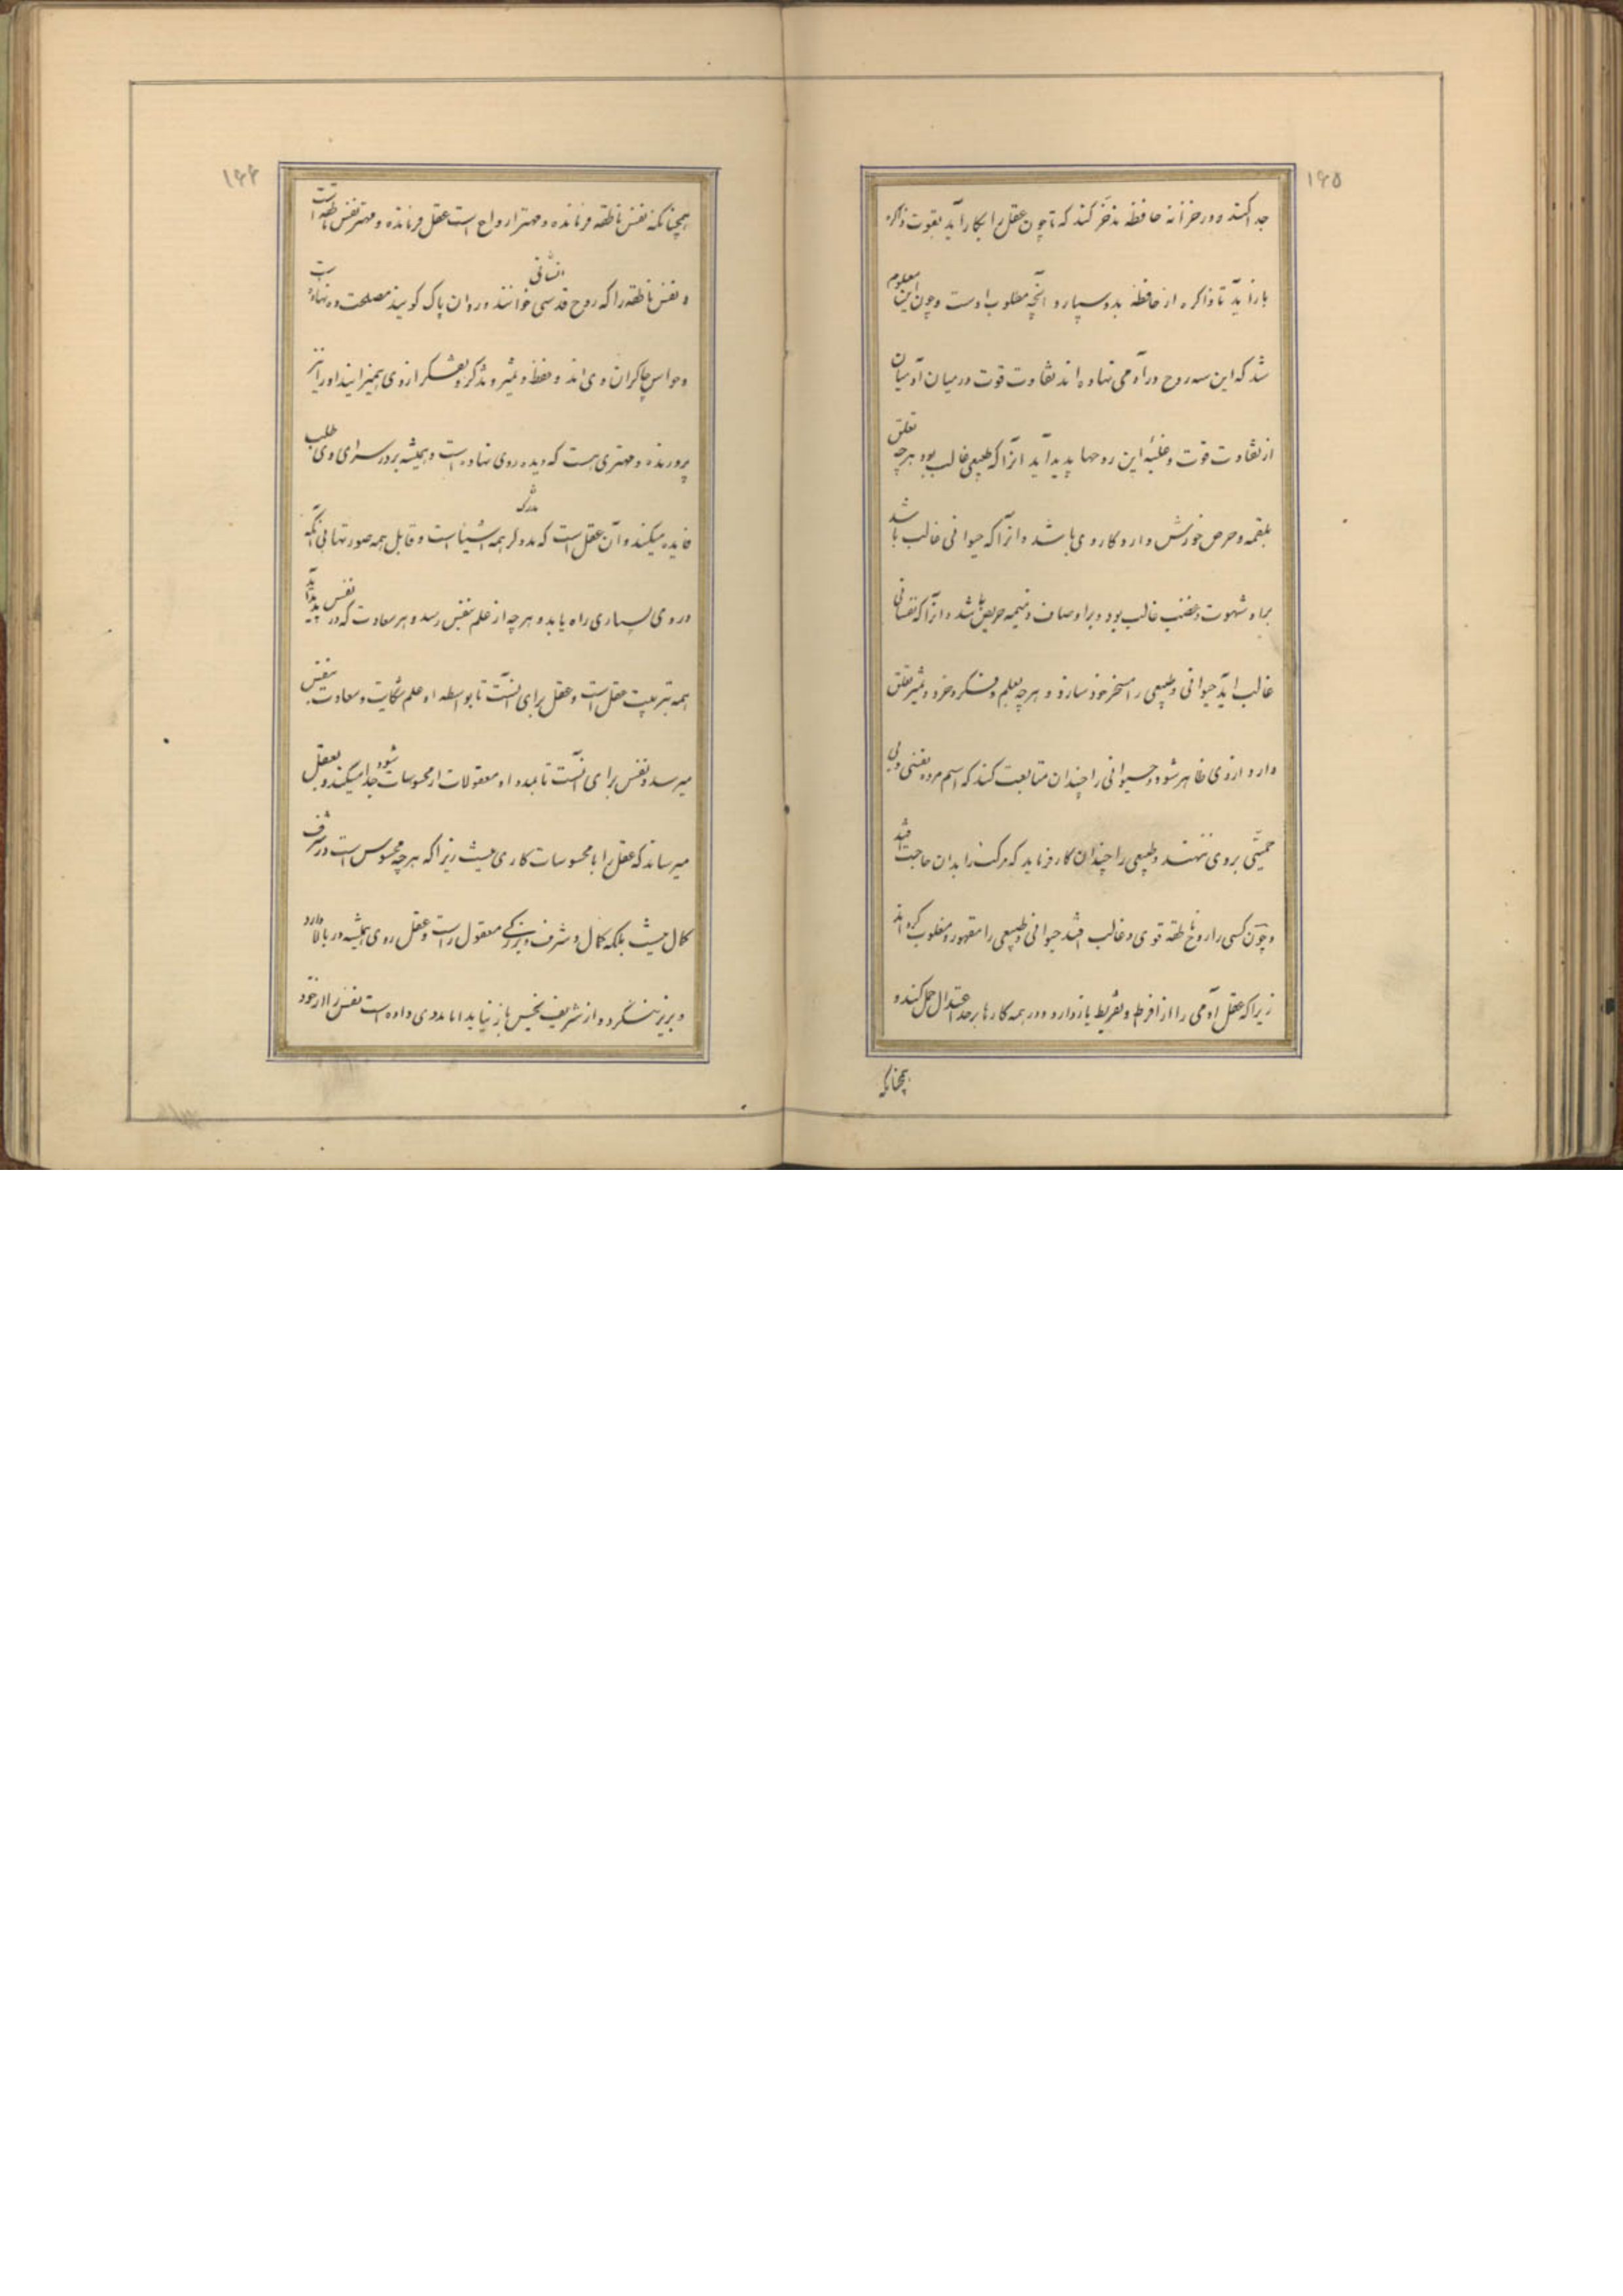 ۱۶۵
جدا کند و در خزانه حافظه مذخر کند که تا چون عقل را بکار آید بقوت ذاکره
باز آید تا ذاکره از حافظه بدو سپارد آنچه مطلوب اوست و چون این معلوم
شد که این سه روح در آدمی نهاده اند تفاوت قوت در میان آدمیان
از تفاوت قوت و غلبه این روحها پدید آید آنرا که طبیعی غالب بود هر چه تعلق
بلقمه و حرص خورش دارد کار وی باشد و آنرا که حیوانی غالب باشد
براه شهوت و غضب غالب بود و بر اوصاف ذمیمه حریص باشد و آنرا که نفسانی
غالب آید حیوانی و طبیعی را مسخر خود سازد و هر چه بعلم و فکر و خرد و تمیز تعلق
دارد از وی ظاهر شود و حیوانی را چندان متابعت کند که اسم مرده نفسی و بی
حمیتی بر وی ننهند و طبیعی را چندان کار فرماید که مرکب را بدان حاجت افتد
و چون کسی را روح ناطقه قوی و غالب افتد حیوانی و طبیعی را مقهور و مغلوب گرداند
زیرا که عقل آدمی را از افراط و تفریط باز دارد و در همه کارها بر حد اعتدال حمل کند و
همچنانکه
۱۶۶
همچنانکه نفس ناطقه فرمانده و مهتر ارواح است عقل فرمانده و مهتر نفس ناطقه است
و نفس ناطقه را که روح قدسی انسانی خوانند و روان پاک گویند مصلحت ده نهاد است
و حواس چاکران وی اند و حفظ و تمیز و تذکر و تفکر از وی همیزایند او را نیز
پرورنده و مهتری هست که دیده روی نهاده است و همیشه بر در سرای وی طلب
فایده میکند و آن عقل است که مدرک همه اشیاست و قابل همه صورتها بی آنکه
در وی بسیاری راه یابد و هر چه از علم بنفس رسد و هر سعادت که در نفس پدید آید
همه بتربیت عقل است و عقل برای آنست تا بواسطه او علم و سعادت بنفس
میرسد و نفس برای آنست تا بمدد او معقولات از محسوسات جدا میکند و بعقل
میرساند که عقل را با محسوسات کاری نیست زیرا که هر چه محسوس است در شرف
کمال نیست بلکه کمال و شرف و بزرگی معقول راست و عقل روی همیشه در بالا دارد
و بزیر ننگرد و از شریف بخسیس باز نیاید اما مددی داده است نفس را از خود